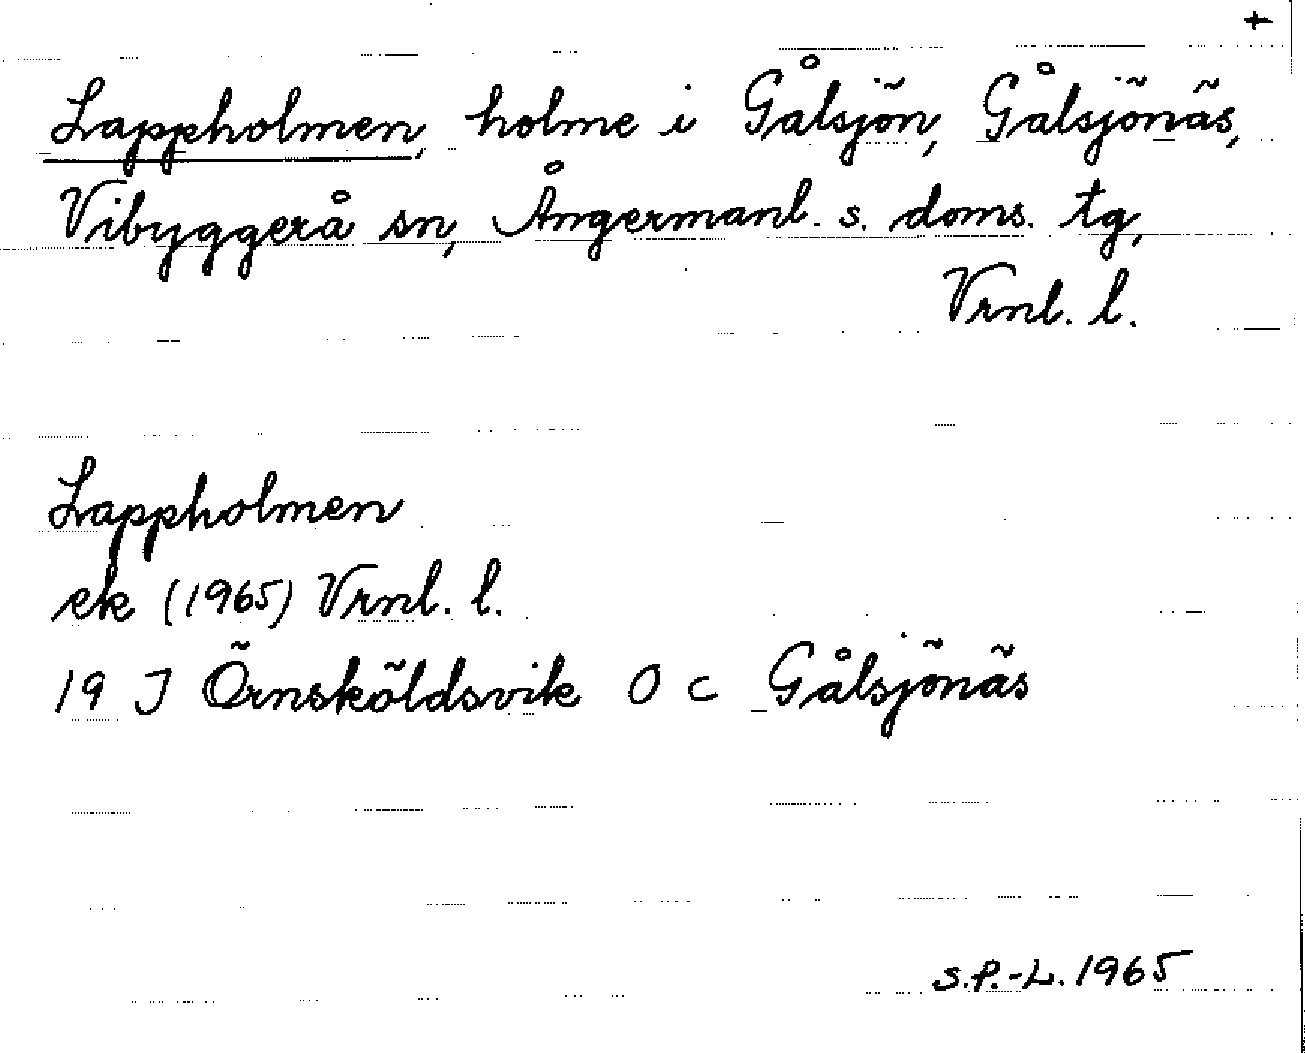 +
Lappholmen, holme i Gålsjön, Gålsjönäs,
Vibyggerå sn, Ångermanl. s. doms. tg,
Vrnl. l.
Lappholmen
ek (1965) Vrnl. l.
19 J Örnsköldsvik O c Gålsjönäs
S.P.-L. 1965